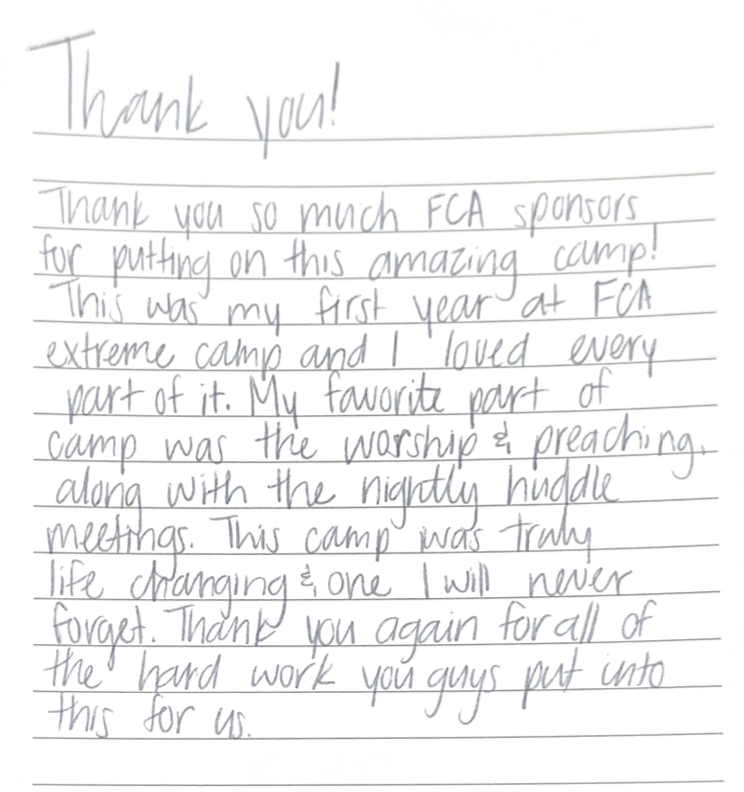 Thank you!
Thank you so much FCA sponsors
for putting on this amazing camp!
This was my first year at FCA
extreme camp and I loved every
part of it. My favorite part of
camp was the worship & preaching,
along with the nightly huddle
meetings. This camp was truly
life changing & one I will never
forget. Thank you again for all of
the hard work you guys put into
this for us.